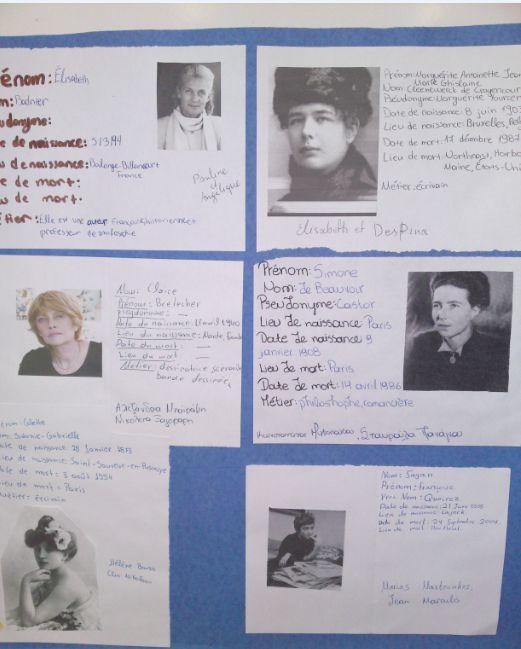 Prénom: Élisabeth
Nom: Badinter
Pseudonyme:
Date de naissance: 5/3/44
Lieu de naissance: Boulogne-Billancourt
France
Date de mort:
Lieu de mort:
Métier: Elle est une
professeur de philosophie
Pauline
et
Angélique
Prénom: Marguerite Antoinette Jean
Marie Ghislaine
Nom: Cleenewerck de Crayencour
Pseudonyme: Marguerite Yourcen
Date de naissance: 8 juin 190
Lieu de naissance: Bruxelles, Bel
Date de mort: 17 décembre 1987
Lieu de mort: Northeast, Harbo
Maine, États-Uni
Métier: écrivain
Elisabeth et Despina
Nom: Claire
Prénom: Bretécher
Pseudonyme: —
Date de naissance: 17 avril 1940
Lieu du naissance: Nante,
Date du mort: —
Lieu du mort —
Métier: dessinatrice scenariste
bande dessinée,
Prénom: Simone
Nom: de Beauvoir
Pseudonyme: Castor
Lieu de naissance: Paris
Date de naissance 9
janvier 1908
Lieu de mort: Paris
Date de mort: 14 avril 1986
Métier: philosophe, romancière
Prénom: Colette
Nom: Sidonie-Gabrielle
Date de naissance 28 Janvier 1873
Lieu de naissance Saint-Sauveur-en-Puisaye
Date de mort: 3 août 1954
Lieu de mort: Paris
Métier: écrivain
Hélène
Nom: Sagan
Prénom: Françoise
Vrai Nom: Quoirez
Date de naissance: 21 Juin 1935
Lieu de naissance: Cajarc
Date de mort: 24 Septembre 2004
Lieu de mort: Honfleur
Marios
Jean